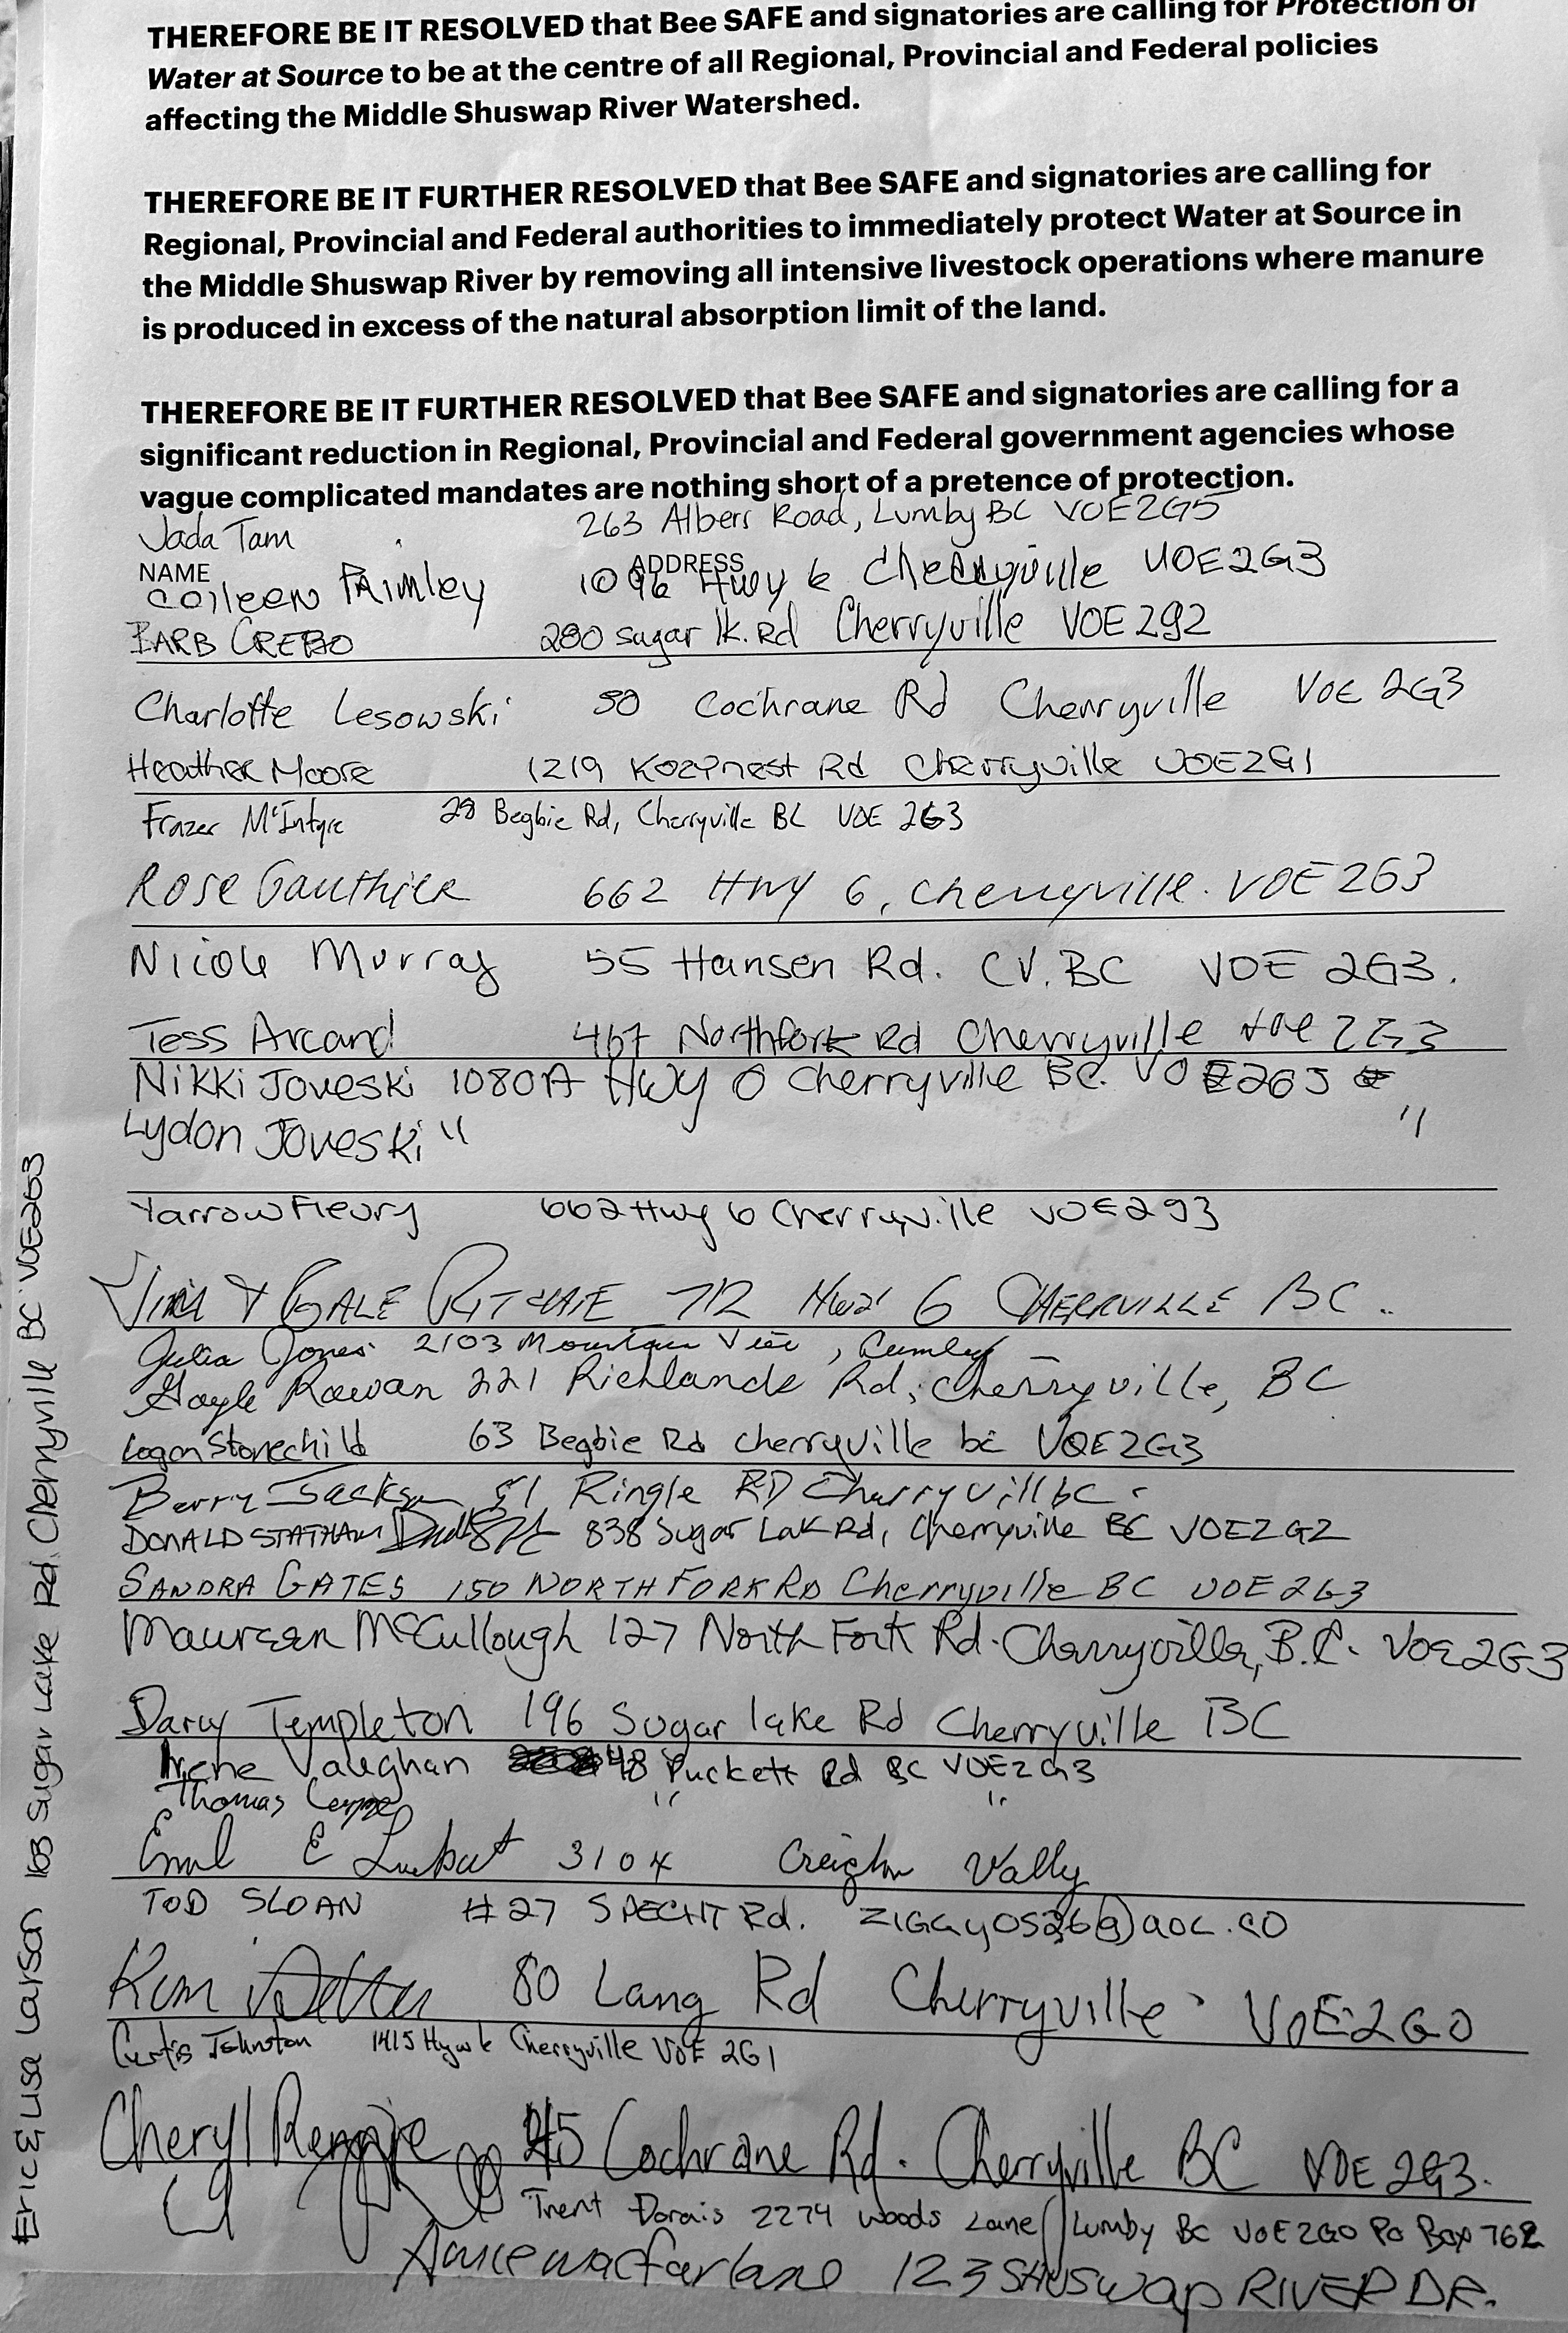 THEREFORE BE IT RESOLVED that Bee SAFE and signatories are calling for Protection of
Water at Source to be at the centre of all Regional, Provincial and Federal policies
affecting the Middle Shuswap River Watershed.
THEREFORE BE IT FURTHER RESOLVED that Bee SAFE and signatories are calling for
Regional, Provincial and Federal authorities to immediately protect Water at Source in
the Middle Shuswap River by removing all intensive livestock operations where manure
is produced in excess of the natural absorption limit of the land.
THEREFORE BE IT FURTHER RESOLVED that Bee SAFE and signatories are calling for a
significant reduction in Regional, Provincial and Federal government agencies whose
vague complicated mandates are nothing short of a pretence of protection.
Jada Tam 263 Albers Road, Lumby BC V0E2G5
NAME ADDRESS
Colleen Primley 1096 Hwy 6 Cherryville V0E2G3
BARB CREBO 280 Sugar lk. Rd Cherryville V0E 2G2
Charlotte Lesowski 50 Cochrane Rd Cherryville V0E 2G3
Heather Moore 1219 Kozynest Rd Cherryville V0E2G1
Frazer McIntyre 28 Begbie Rd, Cherryville BC V0E 2G3
Rose Gauthier 662 HWY 6, Cherryville. V0E 2G3
Nicole Murray 55 Hansen Rd. CV. BC V0E 2G3.
Tess Arcand 467 Northfork Rd Cherryville V0E 2G3
Nikki Joveski 1080A HWY 6 Cherryville BC. V0E2G3
Lydon Joveski " "
Yarrow Fleury 662 Hwy 6 Cherryville V0E2G3
JIM & GALE RITCHIE 712 HWY 6 CHERRVILLE BC.
Julia Jones 2103 Mountain View, Lumby
Gayle Rowan 221 Richlands Rd, Cherryville, BC
Logan Stonechild 63 Begbie Rd cherryville bc V0E2G3
Berry Jackson 51 Ringle RD Cherryvill bc.
DONALD STATHAM 838 Sugar Lak Rd, Cherryville BC V0E2G2
SANDRA GATES 150 NORTH FORK RD Cherryville BC V0E 2G3
Maureen McCullough 127 North Fork Rd. Cherryville, B.C. V0E2G3
Darcy Templeton 196 Sugar lake Rd Cherryville BC
Irene Vaughan 48 Puckett Rd BC V0E2G3
Thomas " "
E 3104 Creighton Vally
TOD SLOAN #27 SPECHT Rd. ZIGGYOS26@aol.co
Kim 80 Lang Rd Cherryville V0E2G0
Curtis Johnston 1415 Hyw 6 Cherryville V0E 2G1
Cheryl Rennie 45 Cochrane Rd. Cherryville BC V0E 2G3.
Trent Dorais 2274 Woods Lane Lumby BC V0E2G0 Po Box 762
macfarlane 123 SHUSWAP RIVER DR.
Eric & Lisa Larson 168 Sugar Lake Rd. Cherryville BC V0E2G3